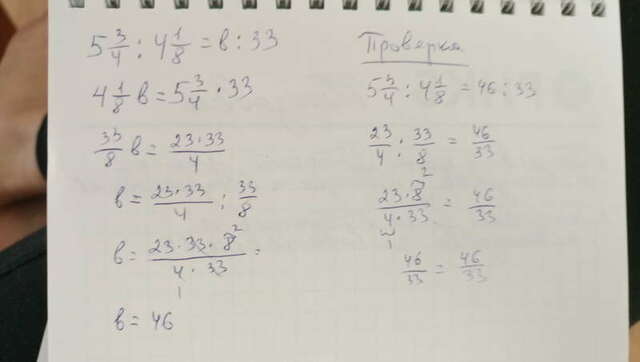 5 3/4 : 4 1/8 = в : 33
4 1/8 в = 5 3/4 · 33
33/8 в = 23·33/4
в = 23·33/4 : 33/8
в = 23·33·8 2/4·33 1 =
в = 46
Проверка
5 3/4 : 4 1/8 = 46 : 33
23/4 : 33/8 = 46/33
23·8 2/4·33 1 = 46/33
46/33 = 46/33